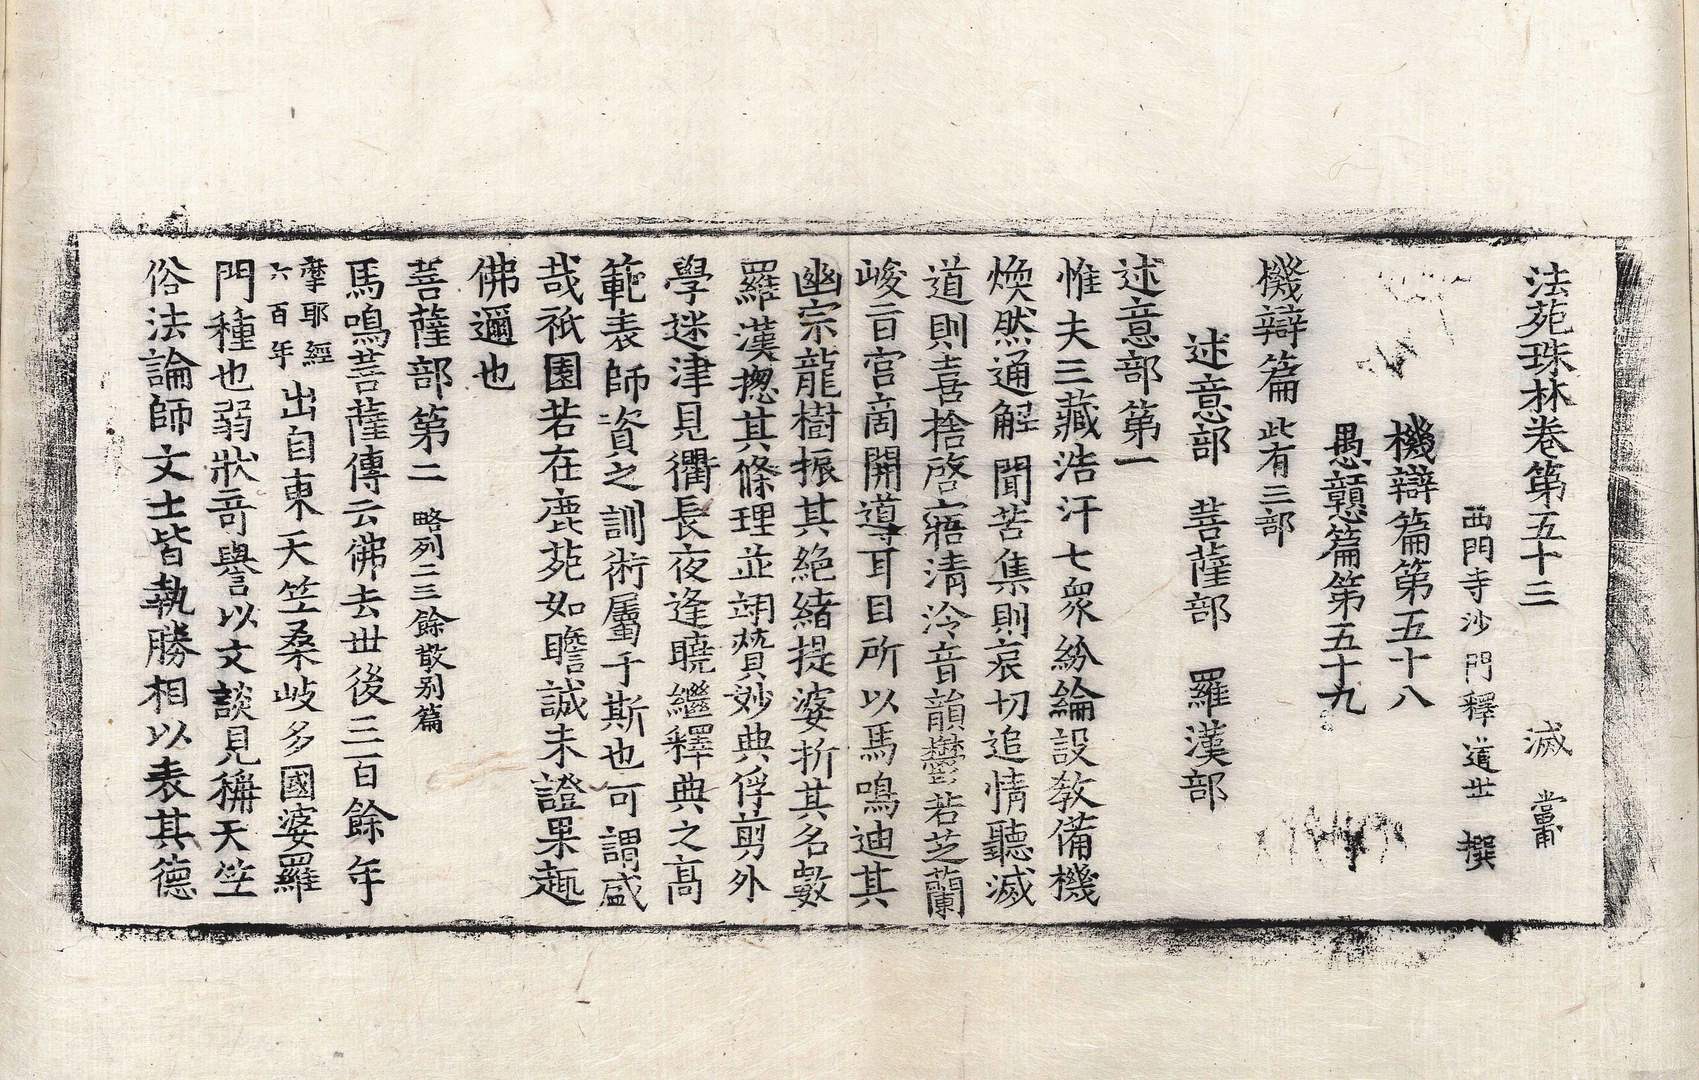 法苑珠林卷第五十三　滅　黨
西門寺沙門釋道世撰
機辯篇第五十八
愚戇篇第五十九
機辯篇此有三部
述意部　菩薩部　羅漢部
述意部第一
惟夫三藏浩汗七衆紛綸設教備機
煥然通解聞苦集則哀切追情聽滅
道則喜捨啓寤清泠音韻欝若芝蘭
峻旨宮商開導耳目所以馬鳴迪其
幽宗龍樹振其絶緒提婆折其名數
羅漢揔其條理並翊賛妙典俘剪外
學迷津見衢長夜逢曉繼釋典之高
範表師資之訓術屬于斯也可謂盛
哉祇園若在鹿苑如瞻誠未證果趣
佛邇也
菩薩部第二略列二三餘散别篇
馬鳴菩薩傳云佛去世後三百餘年
摩耶經六百年出自東天竺桑岐多國婆羅
門種也弱狀竒譽以文談見稱天竺
俗法論師文士皆執勝相以表其德